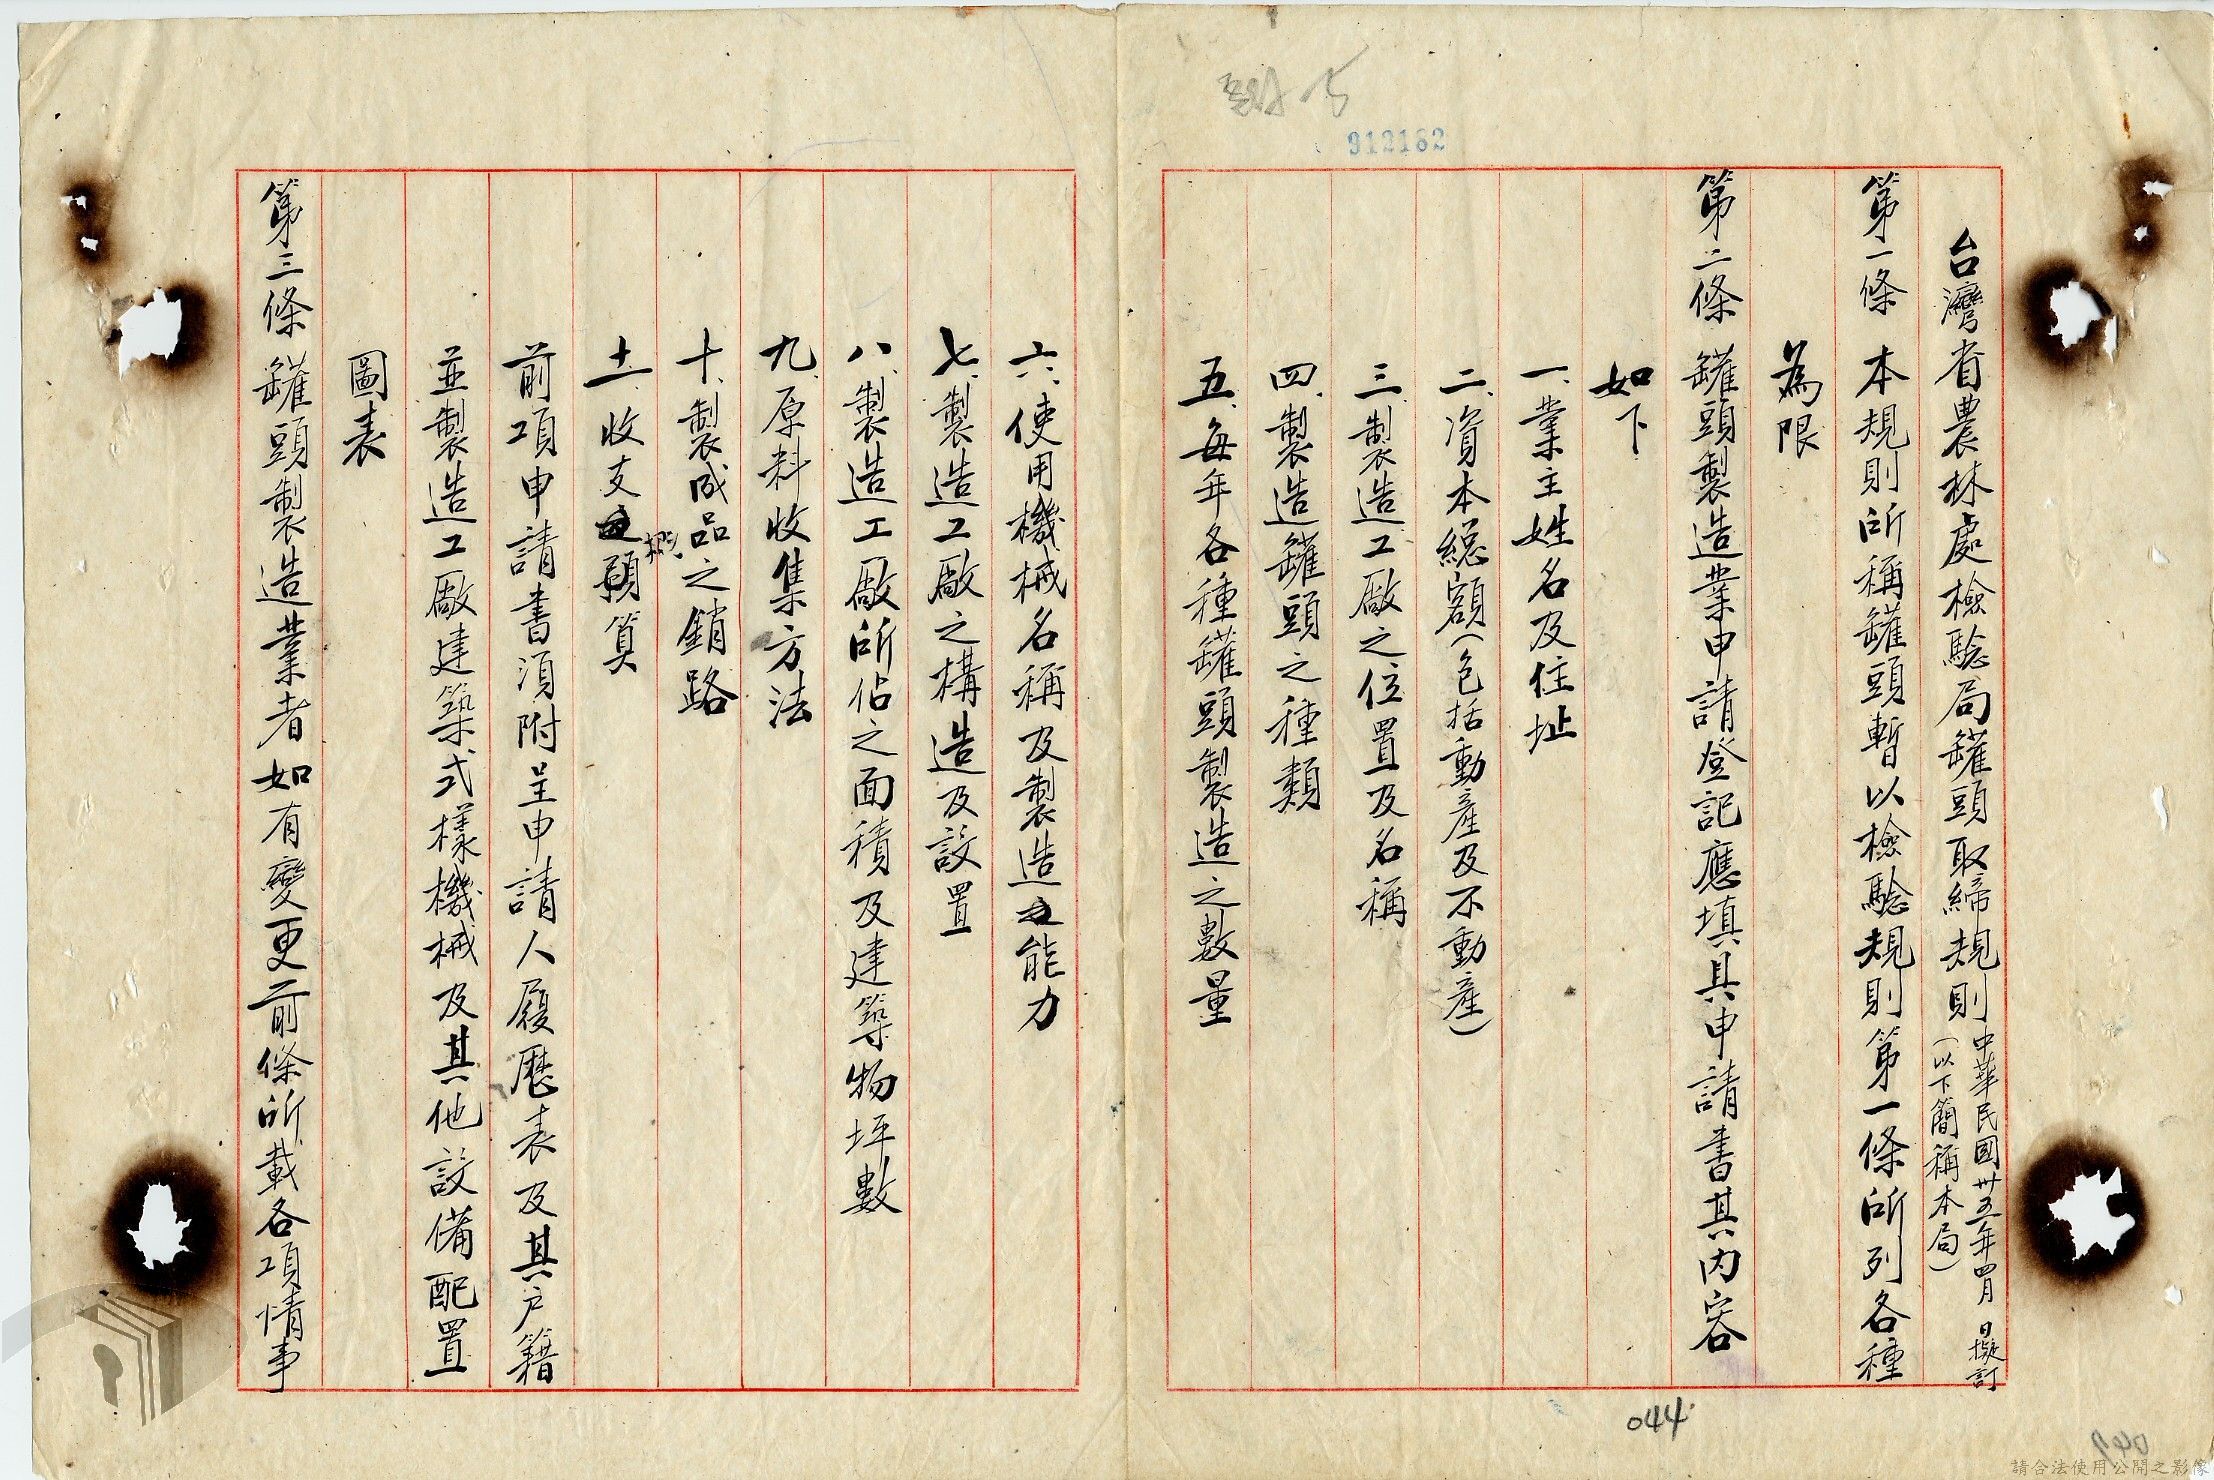 912182
台灣省農林處檢驗局罐頭取締規則 中華民國卅五年四月 日擬訂
(以下簡稱本局)
第一條 本規則所稱罐頭暫以檢驗規則第一條所列各種
為限
第二條 罐頭製造業申請登記應填具申請書其內容
如下
一、業主姓名及住址
二、資本總額(包括動產及不動產)
三、製造工廠之位置及名稱
四、製造罐頭之種類
五、每年各種罐頭製造之數量
六、使用機械名稱及製造能力
七、製造工廠之構造及設置
八、製造工廠所佔之面積及建築物坪數
九、原料收集方法
十、製成品之銷路
十一、收支概預算
前項申請書須附呈申請人履歷表及其戶籍
並製造工廠建築式樣機械及其他設備配置
圖表
第三條 罐頭製造業者如有變更前條所載各項情事
044
請合法使用公開之影像